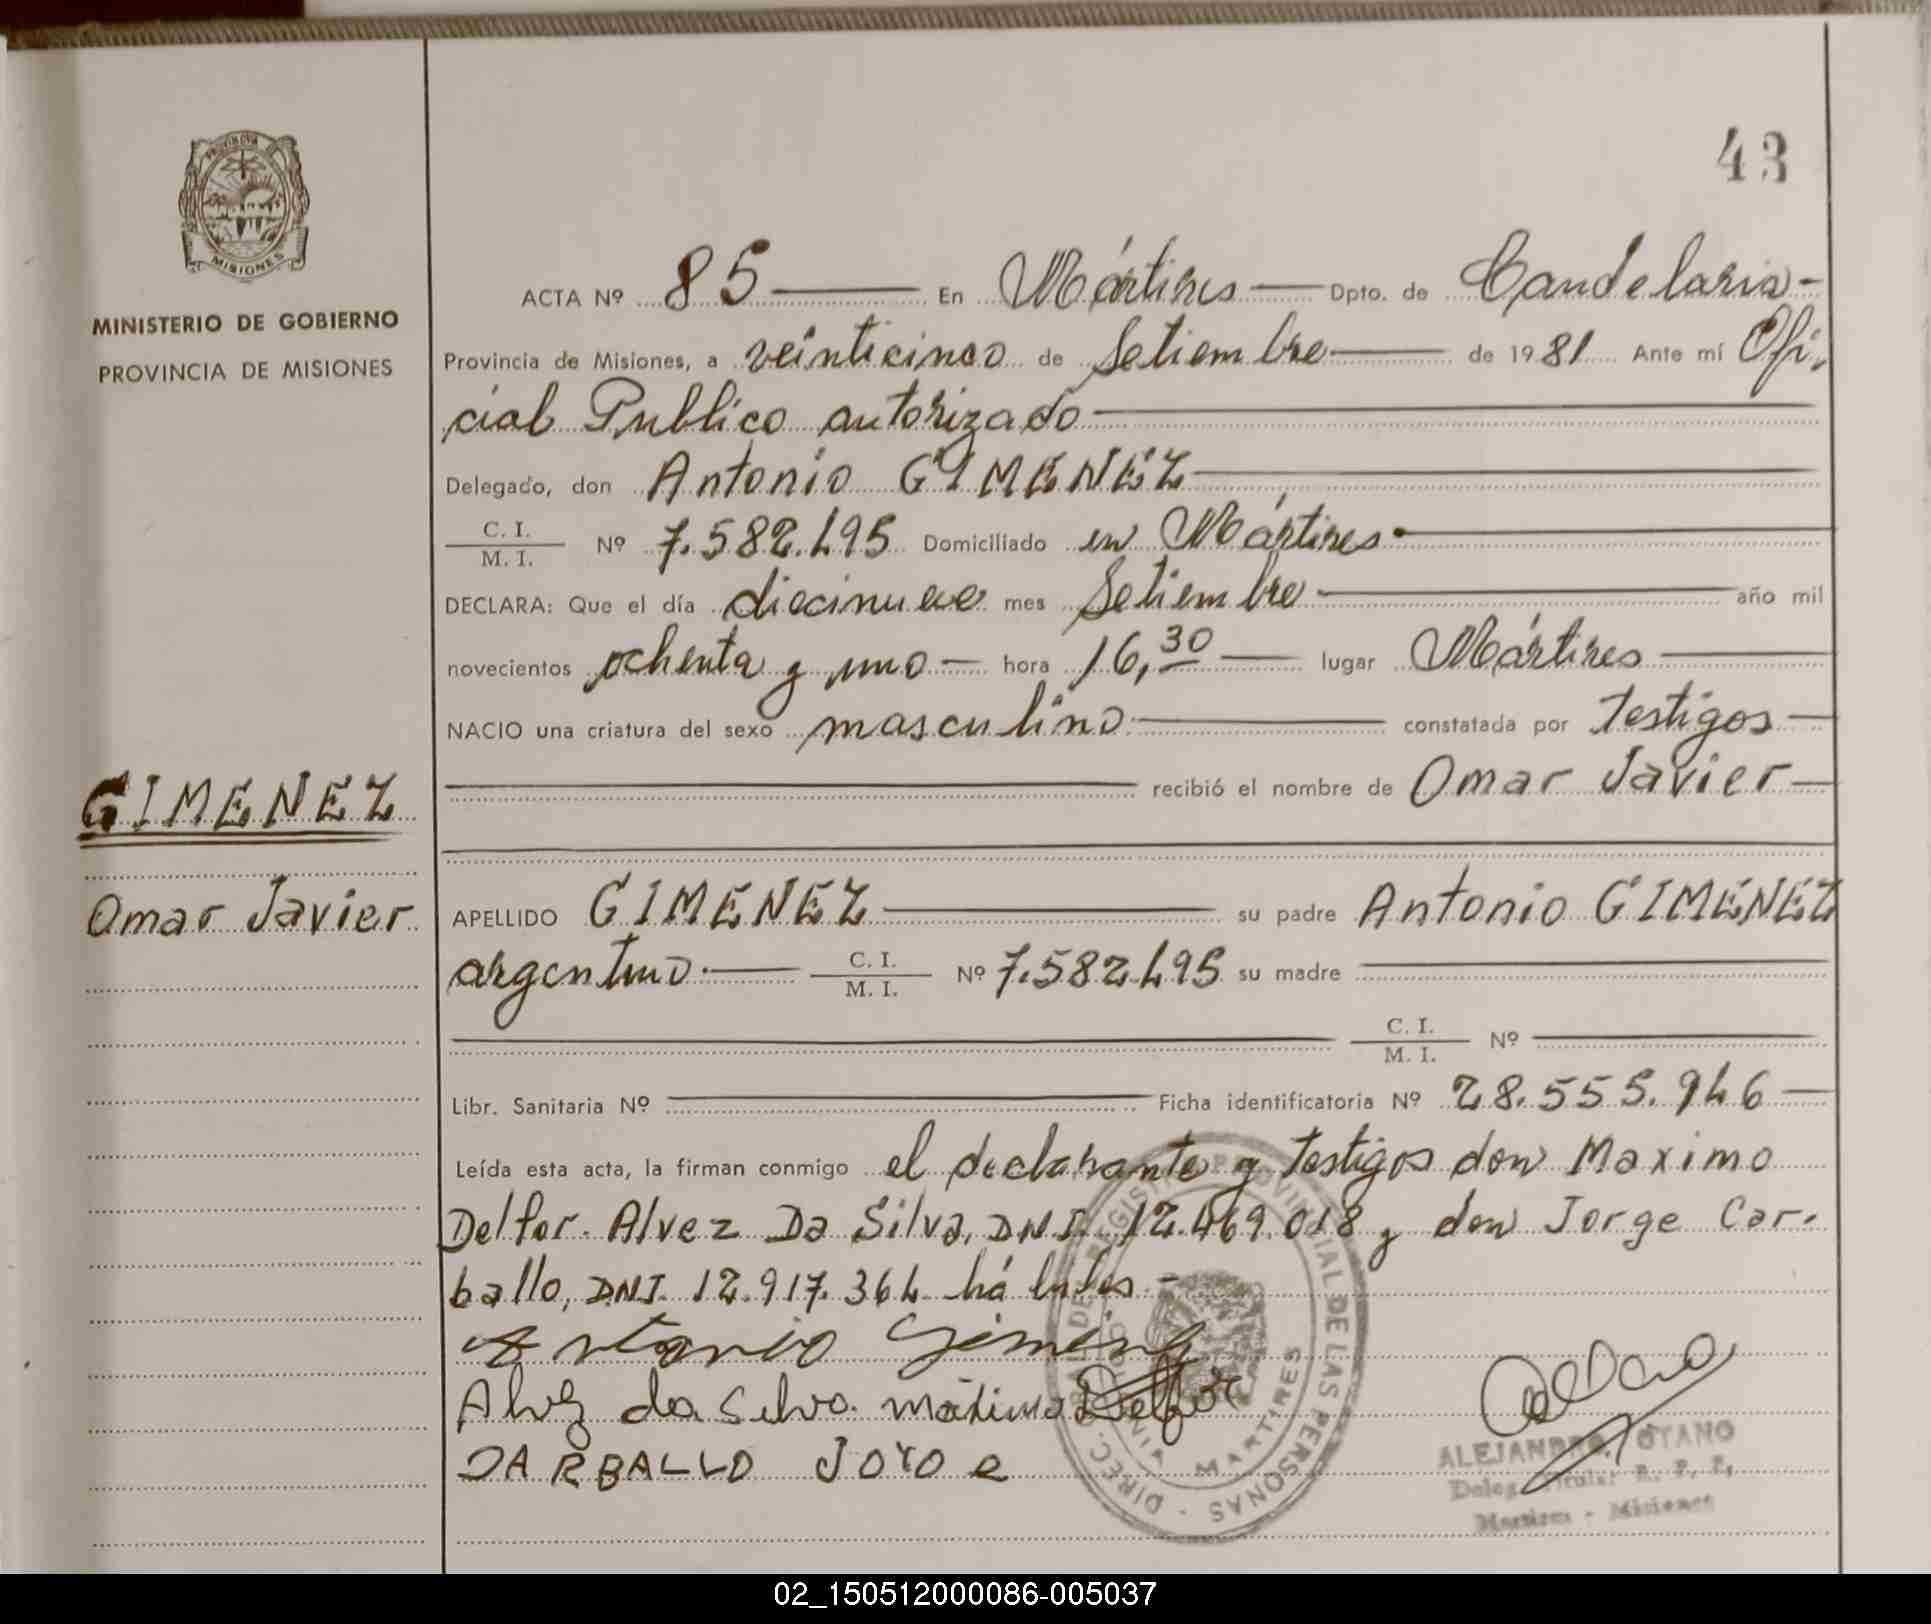 43
PROVINCIA
MISIONES
MINISTERIO DE GOBIERNO
PROVINCIA DE MISIONES
ACTA Nº 85 En Mártires Dpto. de Candelaria
Provincia de Misiones, a veinticinco de Setiembre de 1981 Ante mí Ofi-
cial Publico autorizado
Delegado, don Antonio GIMENEZ
C. I. / M. I. Nº 7.582.495 Domiciliado en Mártires
DECLARA: Que el día diecinueve mes Setiembre año mil
novecientos ochenta y uno hora 16,30 lugar Mártires
NACIO una criatura del sexo masculino constatada por testigos
recibió el nombre de Omar Javier
GIMENEZ
Omar Javier
APELLIDO GIMENEZ su padre Antonio GIMENEZ
argentino C. I. / M. I. Nº 7.582.495 su madre
C. I. / M. I. Nº
Libr. Sanitaria Nº Ficha identificatoria Nº 28.555.946
Leída esta acta, la firman conmigo el declarante y testigos don Maximo
Delfor Alvez Da Silva, DNI. 12.469.018 y don Jorge Car-
ballo, DNI. 12.917.364 hábiles
Antonio Gimenez
Alvez da Silva maximo Delfor
CARBALLO
DIREC. GRAL. DEL REGISTRO PROVINCIAL DE LAS PERSONAS
MARTIRES
ALEJANDRO OTANO
Deleg. Titular R. P. P.
Martires - Misiones
02_150512000086-005037